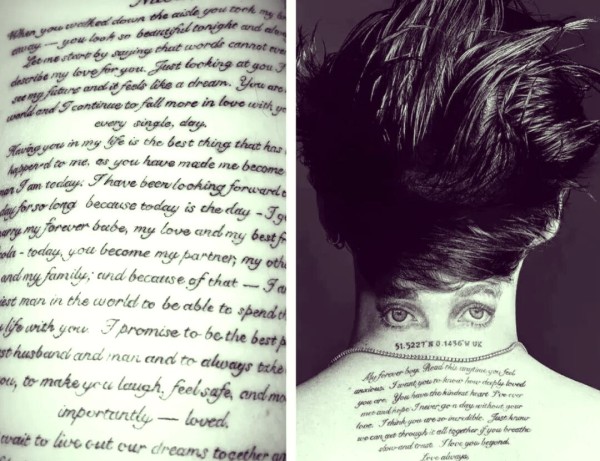 When you walked down the aisle you took my
away — you look so beautiful tonight and
Let me start by saying that words cannot
describe my love for you. Just looking at you I
see my future and it feels like a dream. You are
world and I continue to fall more in love with
every single, day.
Having you in my life is the best thing that has
happened to me, as you have made me become
I am today. I have been looking forward
day for so long because today is the day - I
my forever babe, my love and my best
- today, you become my partner, my
and my family; and because of that — I
man in the world to be able to spend
life with you. I promise to be the best
husband and man and to always take
you, to make you laugh, feel safe, and
importantly — loved.
wait to live out our dreams together
51.5227°N 0.1456°W UK
My forever boy. Read this anytime you feel
anxious. I want you to know how deeply loved
you are. You have the kindest heart I've ever
met and hope I never go a day without your
love. I think you are so incredible. Just know
we can get through it all together if you breathe
slow and trust. I love you beyond.
Love always,